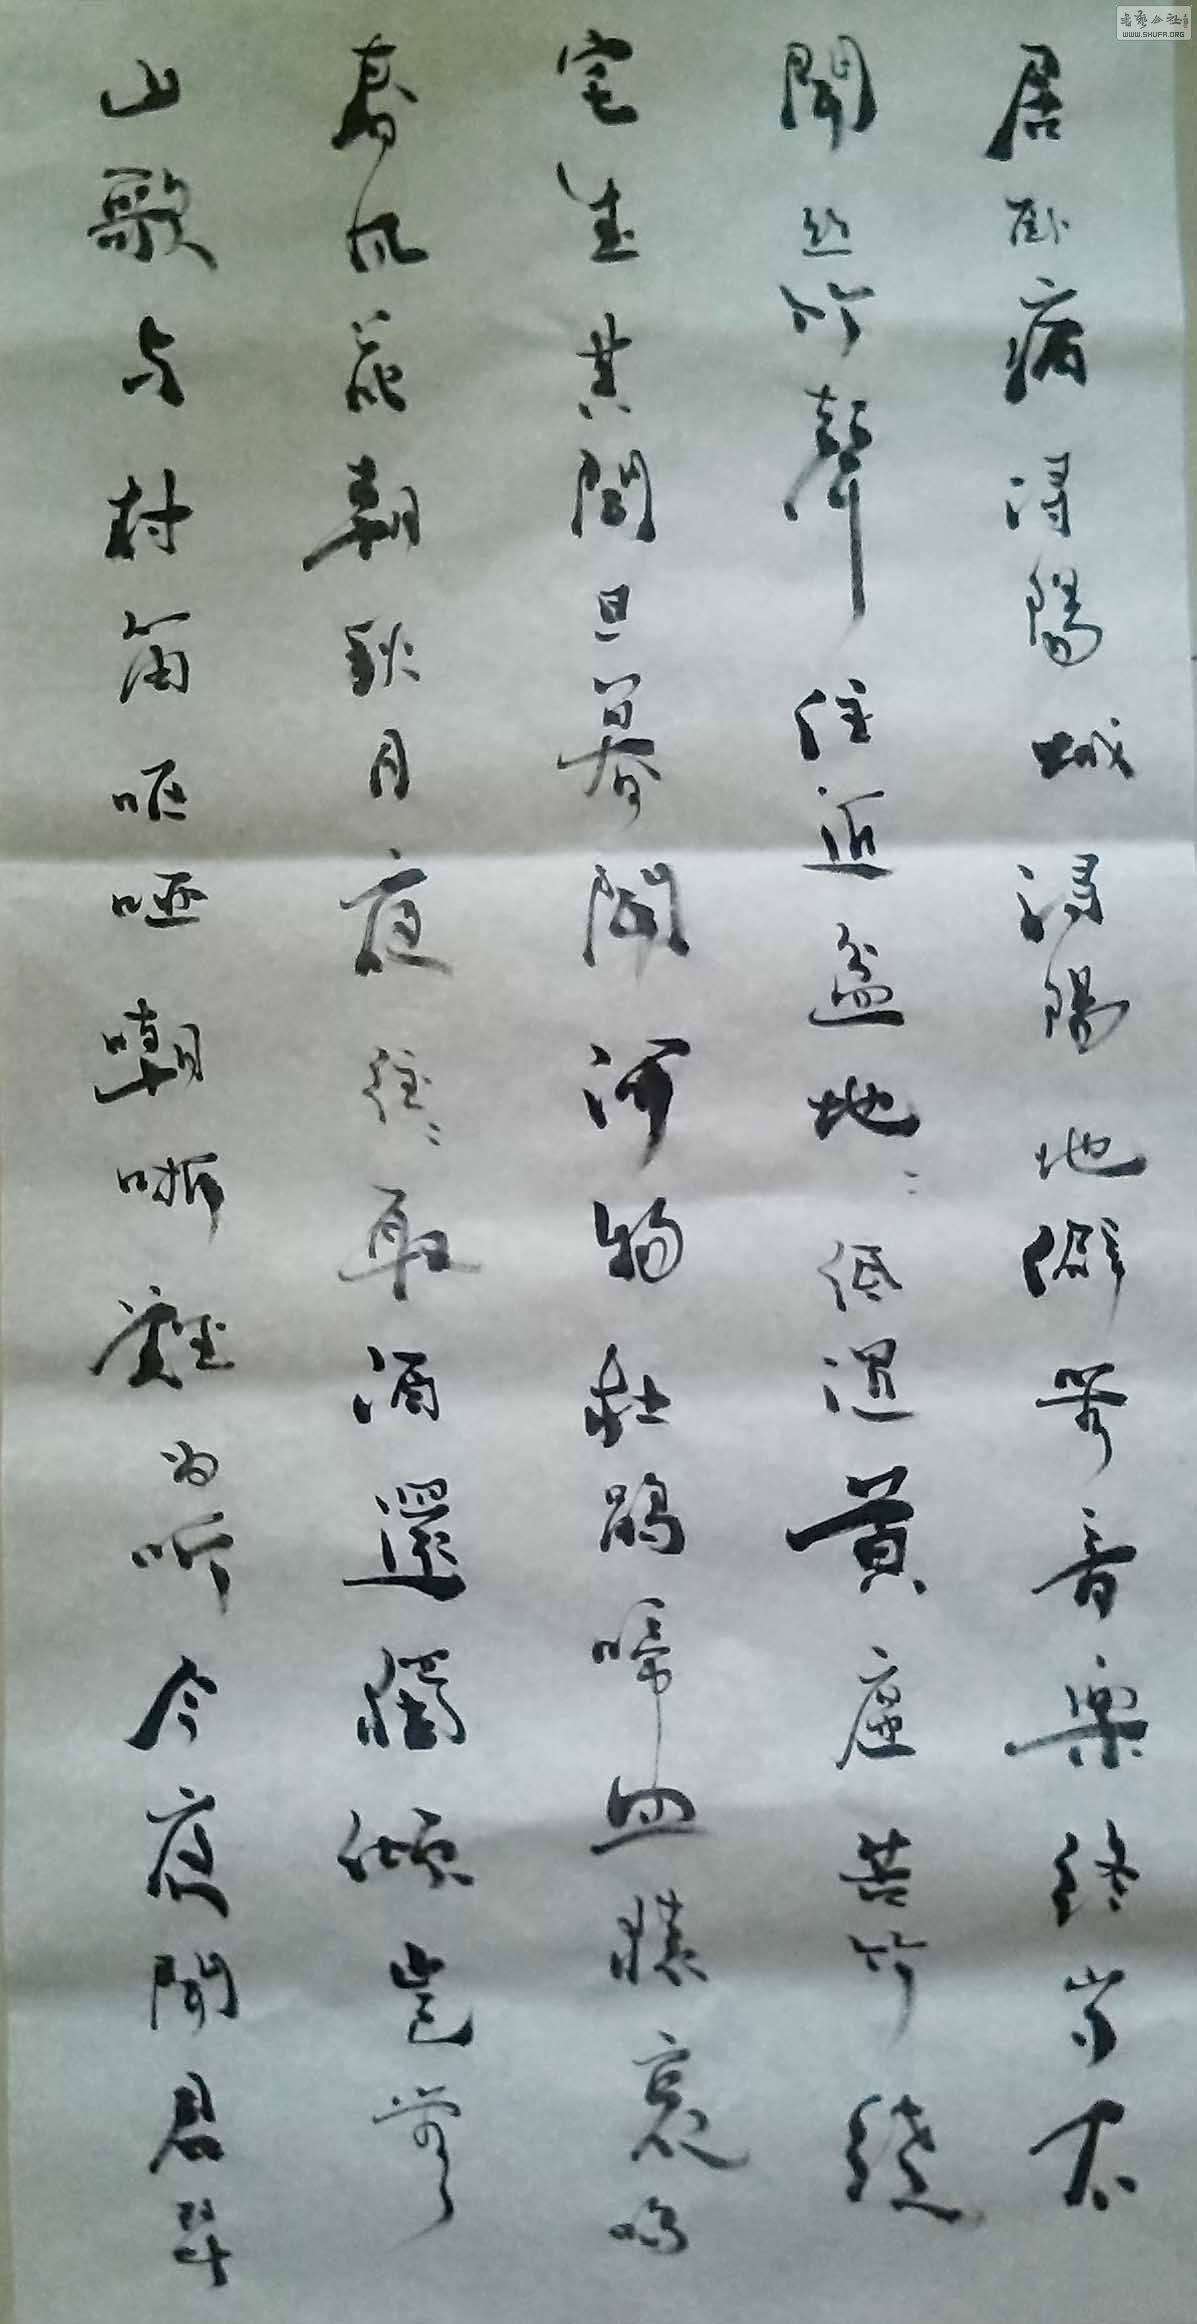 居卧病浔陽城浔陽地僻無音樂終歲不
聞絲竹聲住近湓地〻低濕黃蘆苦竹繞
宅生其間旦暮聞何物杜鵑啼血猿哀鳴
春江花朝秋月夜往〻取酒還獨傾豈無
山歌与村笛呕哑嘲哳難为听今夜聞君琴
书艺公社
WWW.SHUFA.ORG